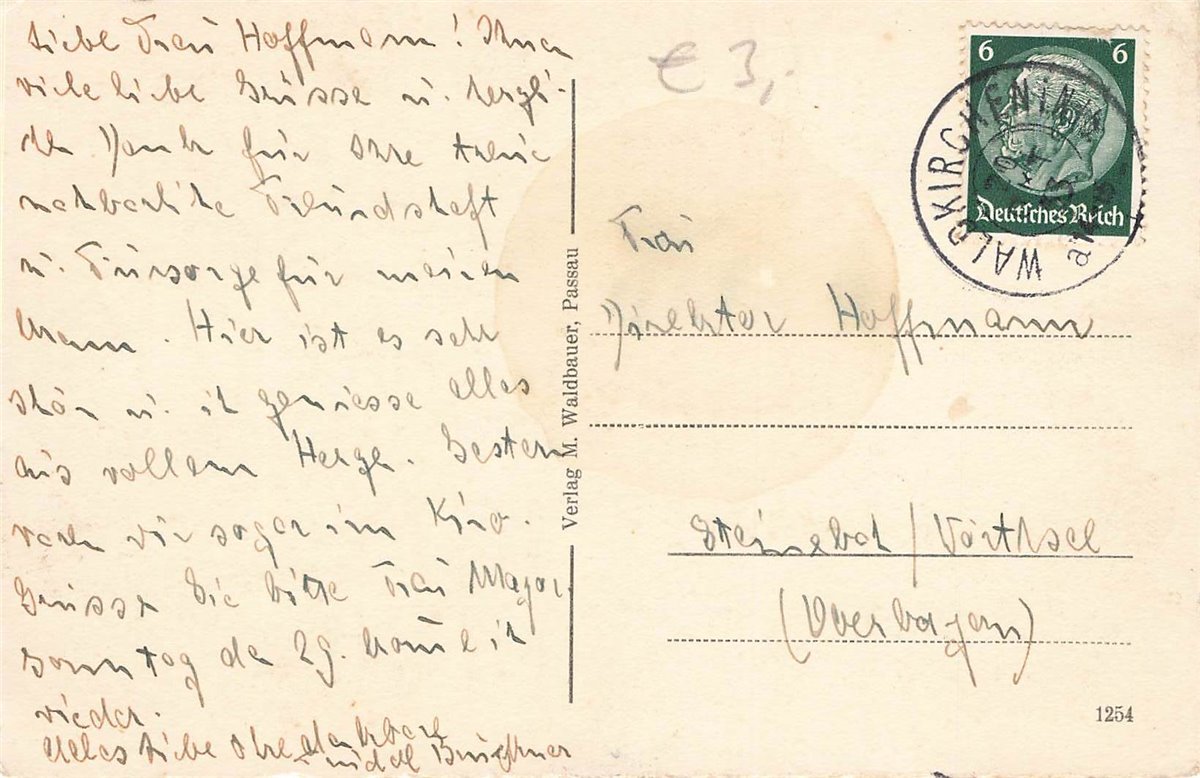 Liebe Frau Hoffmann! Ihnen
viele liebe Grüsse u. herzli-
chen Dank für Ihre treue
nachbarliche Freundschaft
u. Fürsorge für meinen
Mann. Hier ist es sehr
schön u. ich geniesse alles
aus vollem Herzen. Gestern
waren wir sogar im Kino.
Grüssen Sie bitte Frau Major.
Sonntag den 29. komme ich
wieder.
Alles Liebe Ihre dankbare
Verlag M. Waldbauer, Passau
€ 3,-
6 6
Deutsches Reich
WALDKIRCHEN
Frau
Direktor Hoffmann
Steinebach / Wörthsee
(Oberbayern)
1254